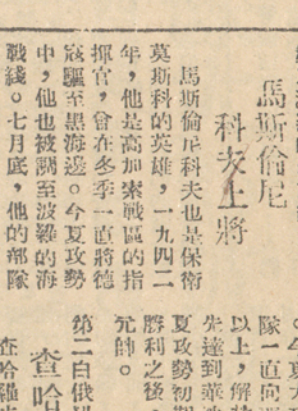 馬斯倫尼
科夫上將
馬斯倫尼科夫也是保衛
莫斯科的英雄，一九四二
年，他是高加索戰區的指
揮官，曾在冬季一直將德
寇驅至黑海邊。今夏攻勢
中，他也被調至波羅的海
戰綫。七月底，他的部隊
。今夏
隊一直向
以上，解
先達到華
夏攻勢初
勝利之後
元帥。
第二白俄
查哈
查哈羅